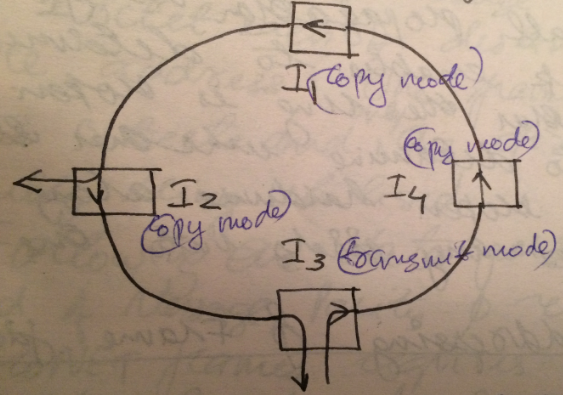 I1 (copy mode)
(copy mode)
I4
I2
(copy mode)
I3 (transmit mode)